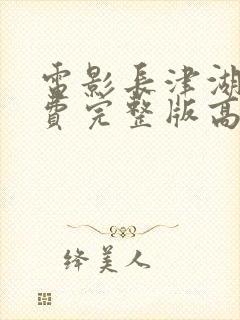 雷影長津湖
費完整版高
绛美人